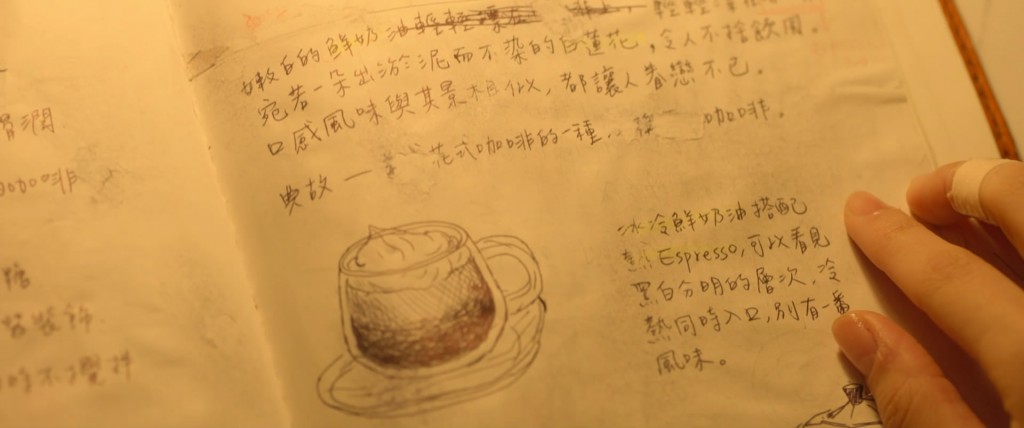 潤
咖啡
糖
裝飾
時不攪拌
嫩白的鮮奶油輕輕
輕輕
宛若一朵出淤泥而不染的白蓮花，令人不捨飲用。
口感風味與其景相似，都讓人眷戀不已。
典故一
花式咖啡的一種
咖啡．
冰冷鮮奶油搭配
熱Espresso,可以看見
黑白分明的層次，冷
熱同時入口,別有一番
風味。